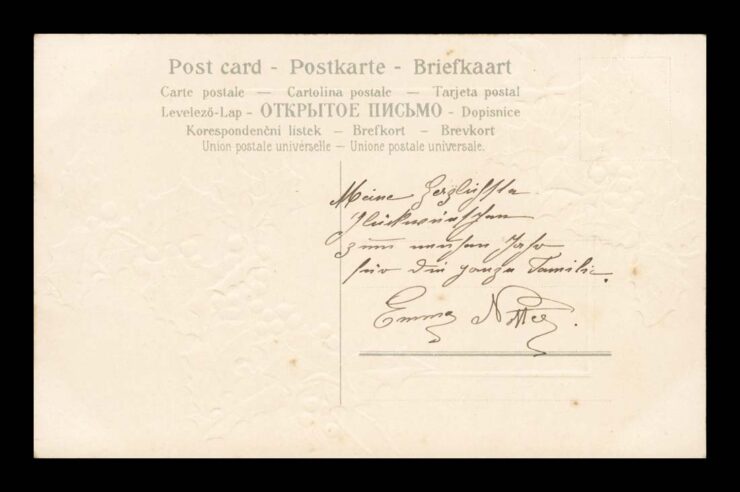 Post card - Postkarte - Briefkaart
Carte postale — Cartolina postale — Tarjeta postal
Levelező-Lap - ОТКРЫТОЕ ПИСЬМО - Dopisnice
Korespondenční listek — Brefkort — Brevkort
Union postale universelle — Unione postale universale.
Meine herzlichste
Glückwünschen
zum neuen Jahr
für die ganze Familie.
Emma